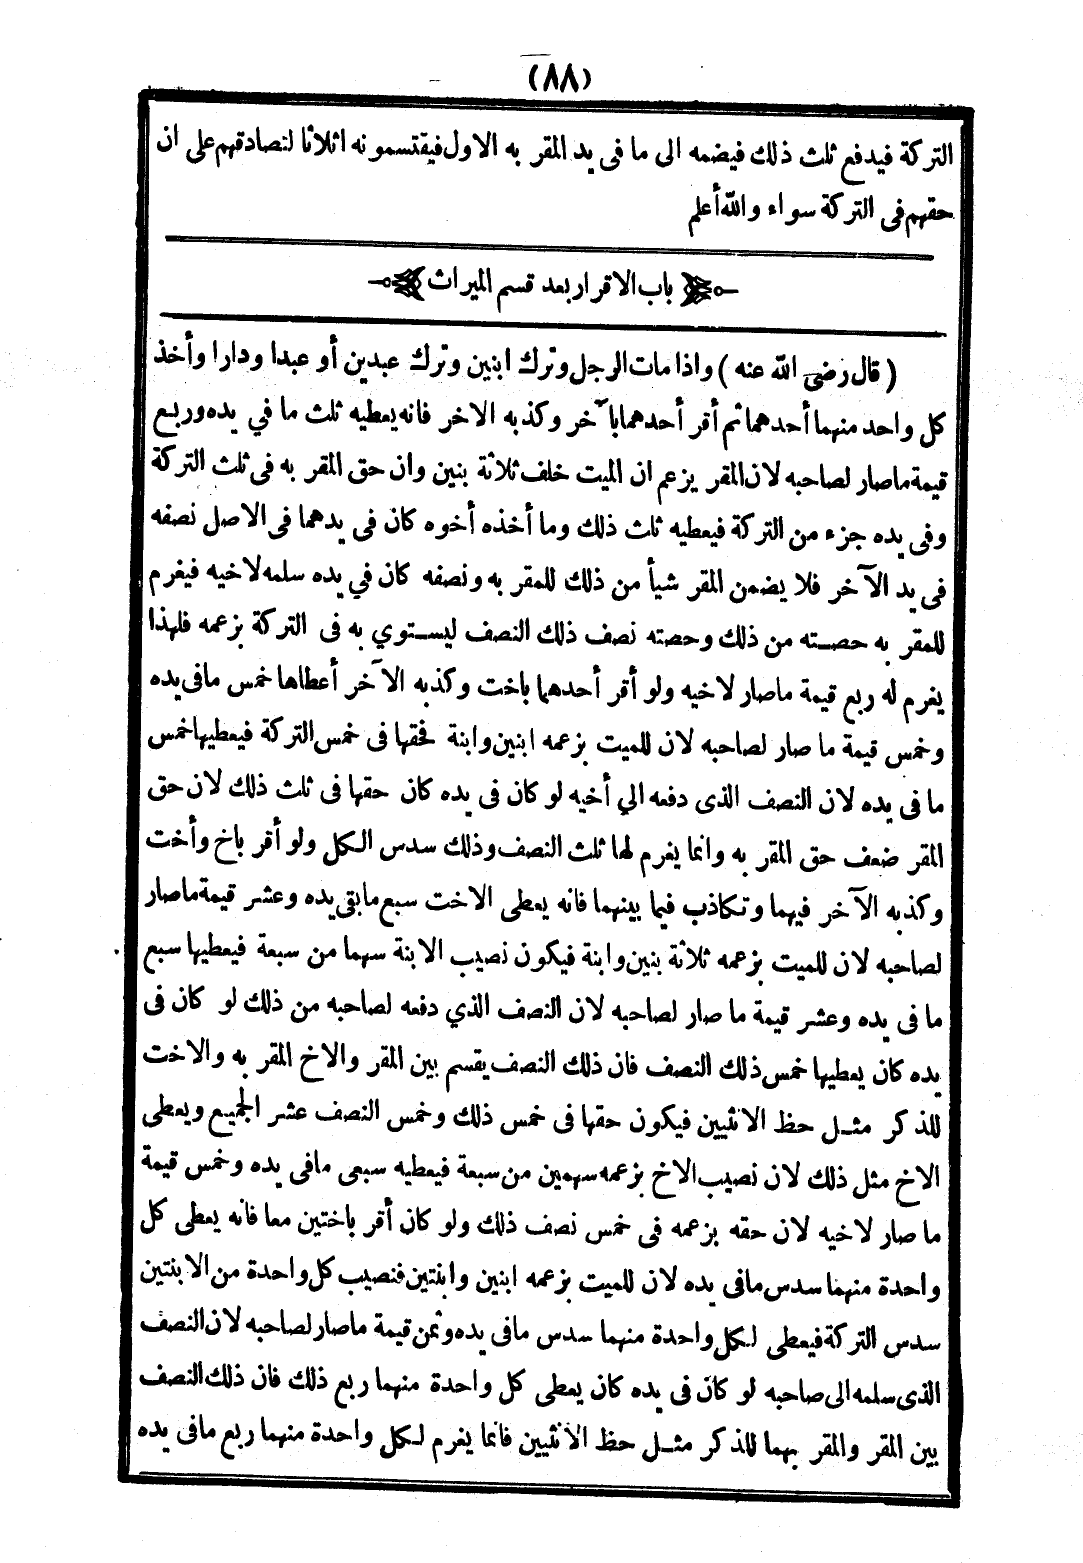 (٨٨)
التركة فيدفع ثلث ذلك فيضمه الى ما فى يد المقر به الاول فيقتسمونه اثلاثا لتصادقهم على ان
حقهم فى التركة سواء والله أعلم
باب الاقرار بعد قسم الميراث
( قال رضى الله عنه ) واذا مات الرجل وترك ابنين وترك عبدين أو عبدا ودارا وأخذ
كل واحد منهما أحدهما ثم أقر أحدهما بآخر وكذبه الاخر فانه يعطيه ثلث ما في يده وربع
قيمة ما صار لصاحبه لان المقر يزعم ان الميت خلف ثلاثة بنين وان حق المقر به فى ثلث التركة
وفى يده جزء من التركة فيعطيه ثلث ذلك وما أخذه أخوه كان فى يدهما فى الاصل نصفه
فى يد الآخر فلا يضمن المقر شيأ من ذلك للمقر به ونصفه كان في يده سلمه لاخيه فيغرم
للمقر به حصته من ذلك وحصته نصف ذلك النصف ليستوي به فى التركة بزعمه فلهذا
يغرم له ربع قيمة ما صار لاخيه ولو أقر أحدهما باخت وكذبه الآخر أعطاها خمس مافى يده
وخمس قيمة ما صار لصاحبه لان للميت بزعمه ابنين وابنة فحقها فى خمس التركة فيعطيها خمس
ما فى يده لان النصف الذى دفعه الي أخيه لو كان فى يده كان حقها فى ثلث ذلك لان حق
المقر ضعف حق المقر به وانما يغرم لها ثلث النصف وذلك سدس الكل ولو أقر باخ وأخت
وكذبه الآخر فيهما وتكاذب فيما بينهما فانه يعطى الاخت سبع مابقى يده وعشر قيمة ماصار
لصاحبه لان للميت بزعمه ثلاثة بنين وابنة فيكون نصيب الابنة سهما من سبعة فيعطيها سبع
ما فى يده وعشر قيمة ما صار لصاحبه لان النصف الذي دفعه لصاحبه من ذلك لو كان فى
يده كان يعطيها خمس ذلك النصف فان ذلك النصف يقسم بين المقر والاخ المقر به والاخت
للذكر مثل حظ الانثيين فيكون حقها فى خمس ذلك وخمس النصف عشر الجميع ويعطى
الاخ مثل ذلك لان نصيب الاخ بزعمه سهمين من سبعة فيعطيه سبعى مافى يده وخمس قيمة
ما صار لاخيه لان حقه بزعمه فى خمس نصف ذلك ولو كان أقر باختين معا فانه يعطى كل
واحدة منهما سدس مافى يده لان للميت بزعمه ابنين وابنتين فنصيب كل واحدة من الابنتين
سدس التركة فيعطى لكل واحدة منهما سدس مافى يده وثمن قيمة ماصار لصاحبه لان النصف
الذى سلمه الى صاحبه لو كان فى يده كان يعطى كل واحدة منهما ربع ذلك فان ذلك النصف
بين المقر والمقر بهما للذكر مثل حظ الانثيين فانما يغرم لكل واحدة منهما ربع مافى يده